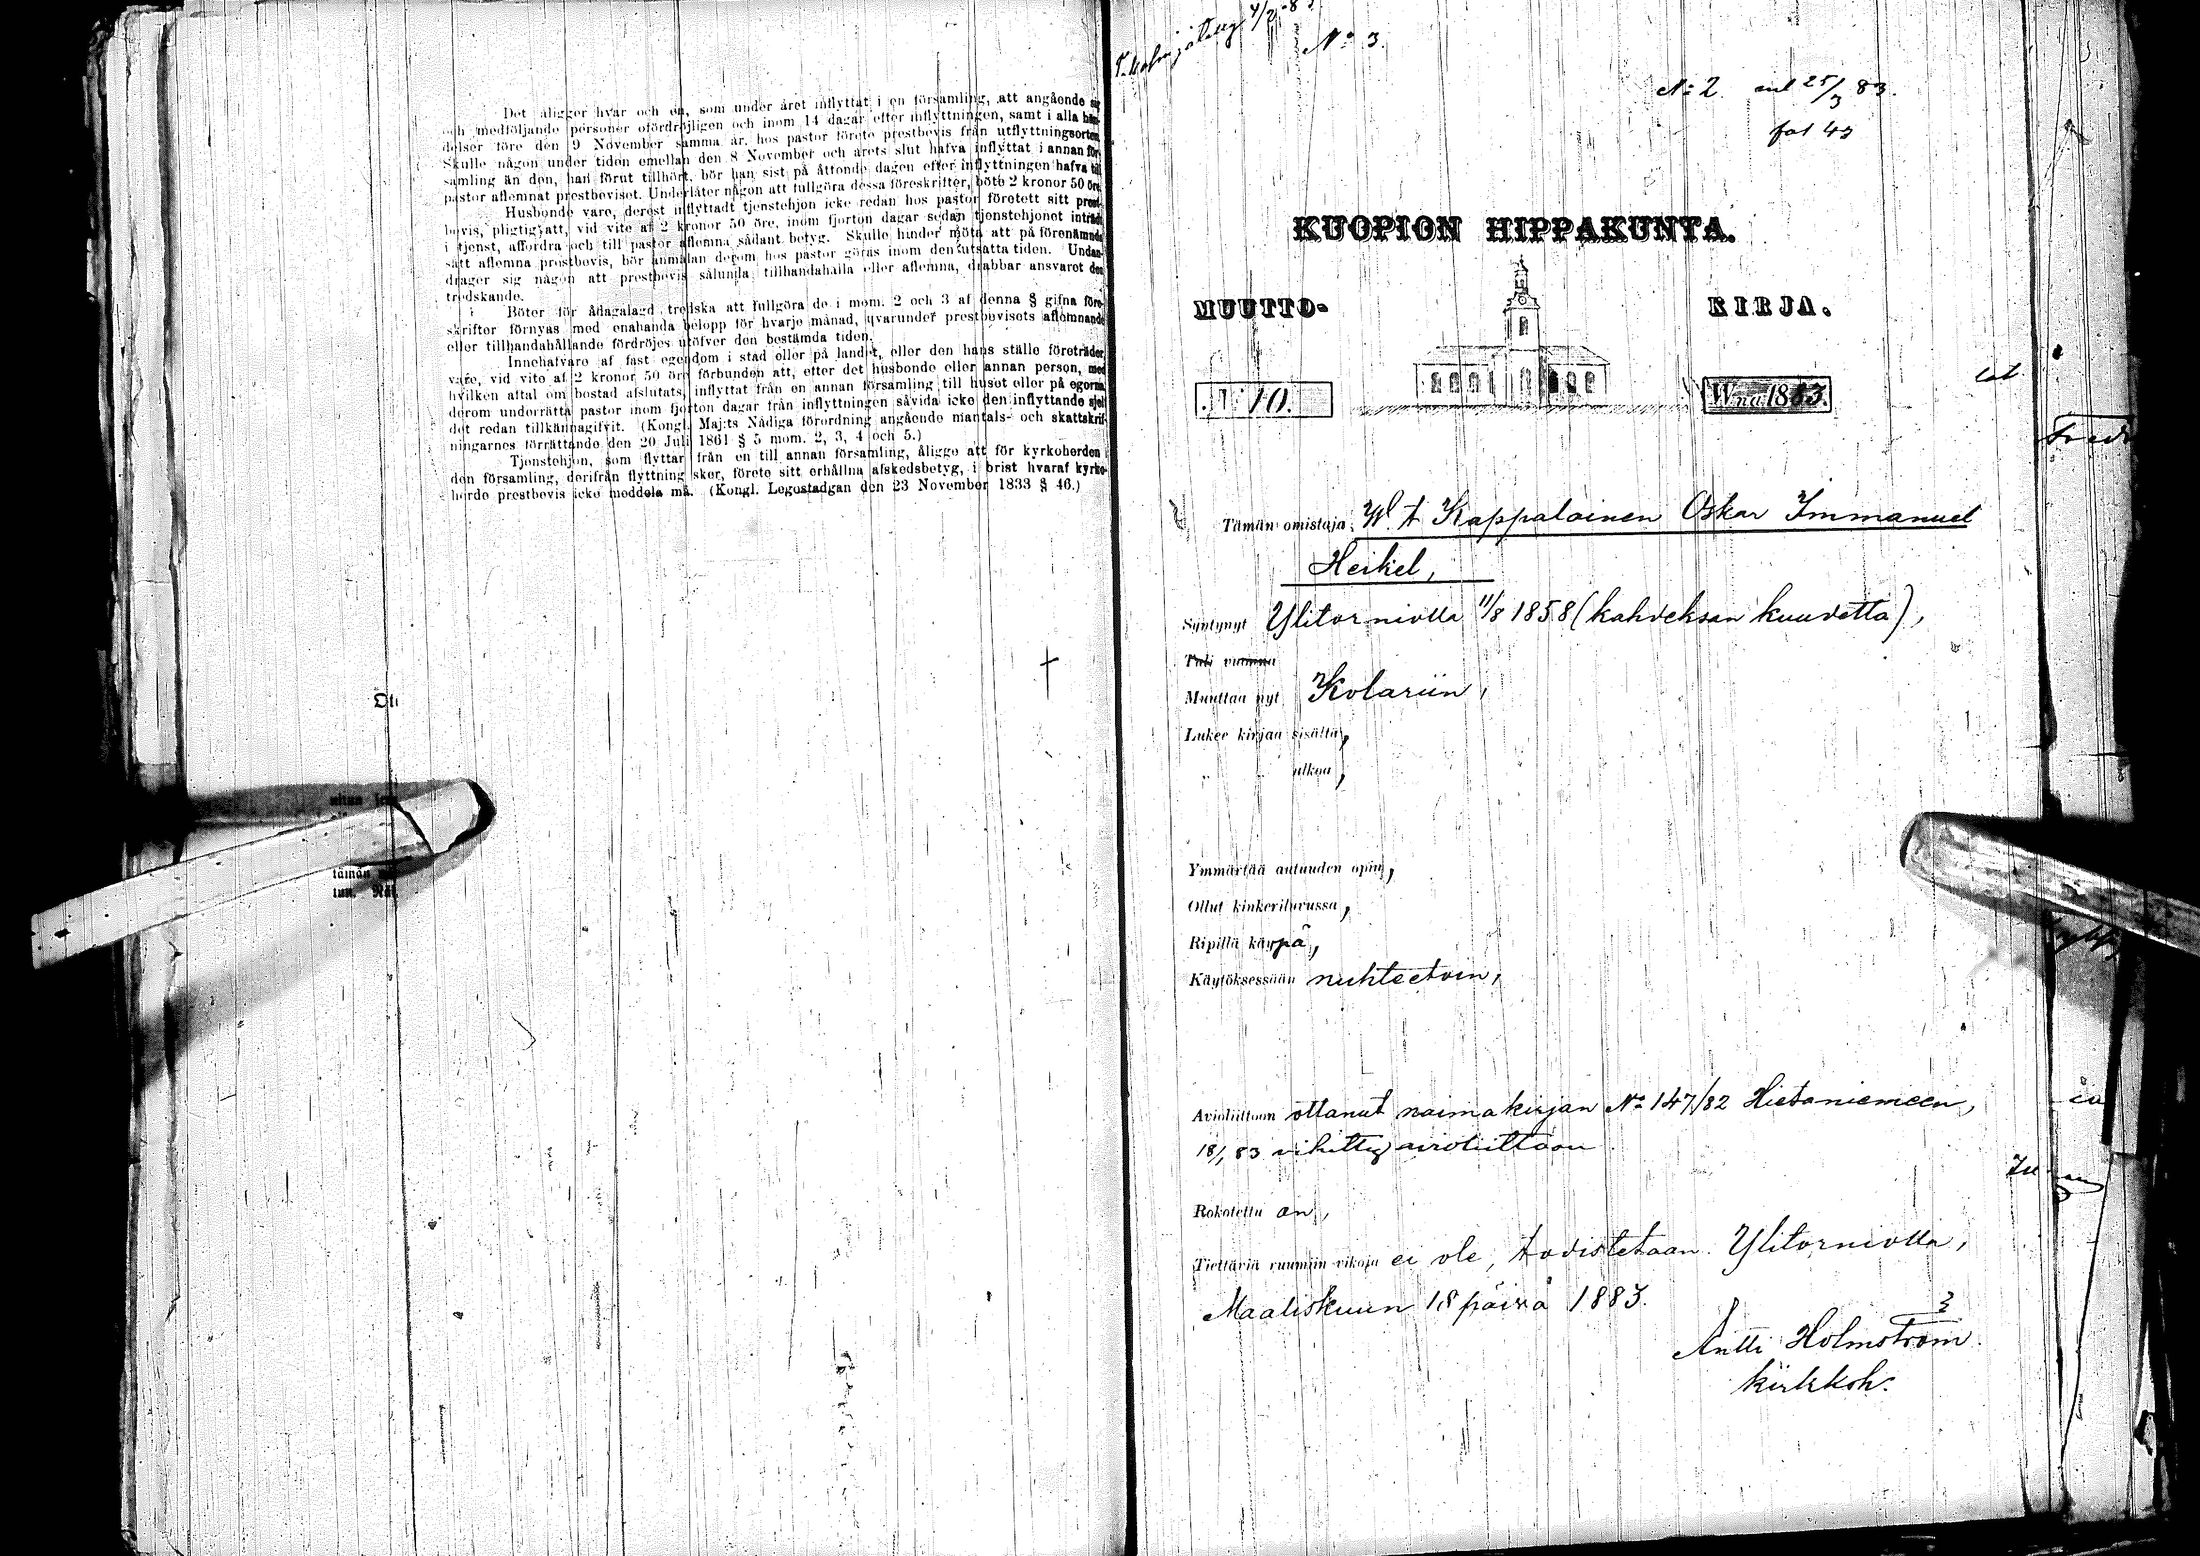 Det åligger hvar och en, som under året inflyttat i en församling, att angående sig
och medföljande personer ofördröjligen och inom 14 dagar efter inflyttningen, samt i alla hän-
delser före den 9 November samma år, hos pastor förete prestbevis från utflyttningsorten.
Skulle någon under tiden emellan den 8 November och årets slut hafva inflyttat i annan för-
samling än den, han förut tillhört, bör han sist på åttonde dagen efter inflyttningen hafva till
pastor aflemnat prestbeviset. Underlåter någon att fullgöra dessa föreskrifter, böte 2 kronor 50 öre.
Husbonde vare, derest inflyttadt tjenstehjon icke redan hos pastor företett sitt prest-
bevis, pligtig att, vid vite af 2 kronor 50 öre, inom fjorton dagar sedan tjenstehjonet inträdt
i tjenst, affordra och till pastor aflemna sådant betyg. Skulle hinder möta att på förenämnda
sätt aflemna prestbevis, bör anmälan derom hos pastor göras inom den utsatta tiden. Undan-
drager sig någon att prestbevis sålunda tillhandahålla eller aflemna, drabbar ansvaret den
tredskande.
Böter för ådagalagd tredska att fullgöra de i mom. 2 och 3 af denna § gifna före-
skrifter förnyas med enahanda belopp för hvarje månad, hvarunder prestbevisets aflemnande
eller tillhandahållande fördröjes utöfver den bestämda tiden.
Innehafvare af fast egendom i stad eller på landet, eller den hans ställe företräder,
vare, vid vite af 2 kronor 50 öre förbunden att, efter det husbonde eller annan person, med
hvilken aftal om bostad afslutats, inflyttat från en annan församling till huset eller på egorna,
derom underrätta pastor inom fjorton dagar från inflyttningen såvida icke den inflyttande sjelf
det redan tillkännagifvit. (Kongl. Maj:ts Nådiga förordning angående mantals- och skattskrif-
ningarnes förrättande den 20 Juli 1861 § 5 mom. 2, 3, 4 och 5.)
Tjenstehjon, som flyttar från en till annan församling, åligge att för kyrkoherden i
den församling, derifrån flyttning sker, förete sitt erhållna afskedsbetyg, i brist hvaraf kyrko-
herde prestbevis icke meddela må. (Kongl. Legostadgan den 23 November 1833 § 46.)
No 3.
No 2 25/3 83.
fol 43
KUOPION HIPPAKUNTA.
MUUTTO-KIRJA.
N:o 10. W:na 1883.
Tämän omistaja W. t Kappalainen Oskar Immanuel
Heikel,
Syntynyt Ylitorniolla 11/8 1858 (kahdeksan kuudetta),
Tuli vuonna
Muuttaa nyt Kolariin,
Lukee kirjaa sisältä,
„ „ ulkoa,
Ymmärtää autuuden opin,
Ollut kinkeriluvussa,
Ripillä käypä,
Käytöksessään nuhteetoin,
Avioliittoon ottanut naimakirjan No 147/82 Hietaniemeen,
18/1 83 vihitty avioliittoon
Rokotettu on,
Tiettäviä ruumiin vikoja ei ole, todistetaan Ylitorniolla,
Maaliskuun 18 päivä 1883.
Antti Holmström
kirkkoh.